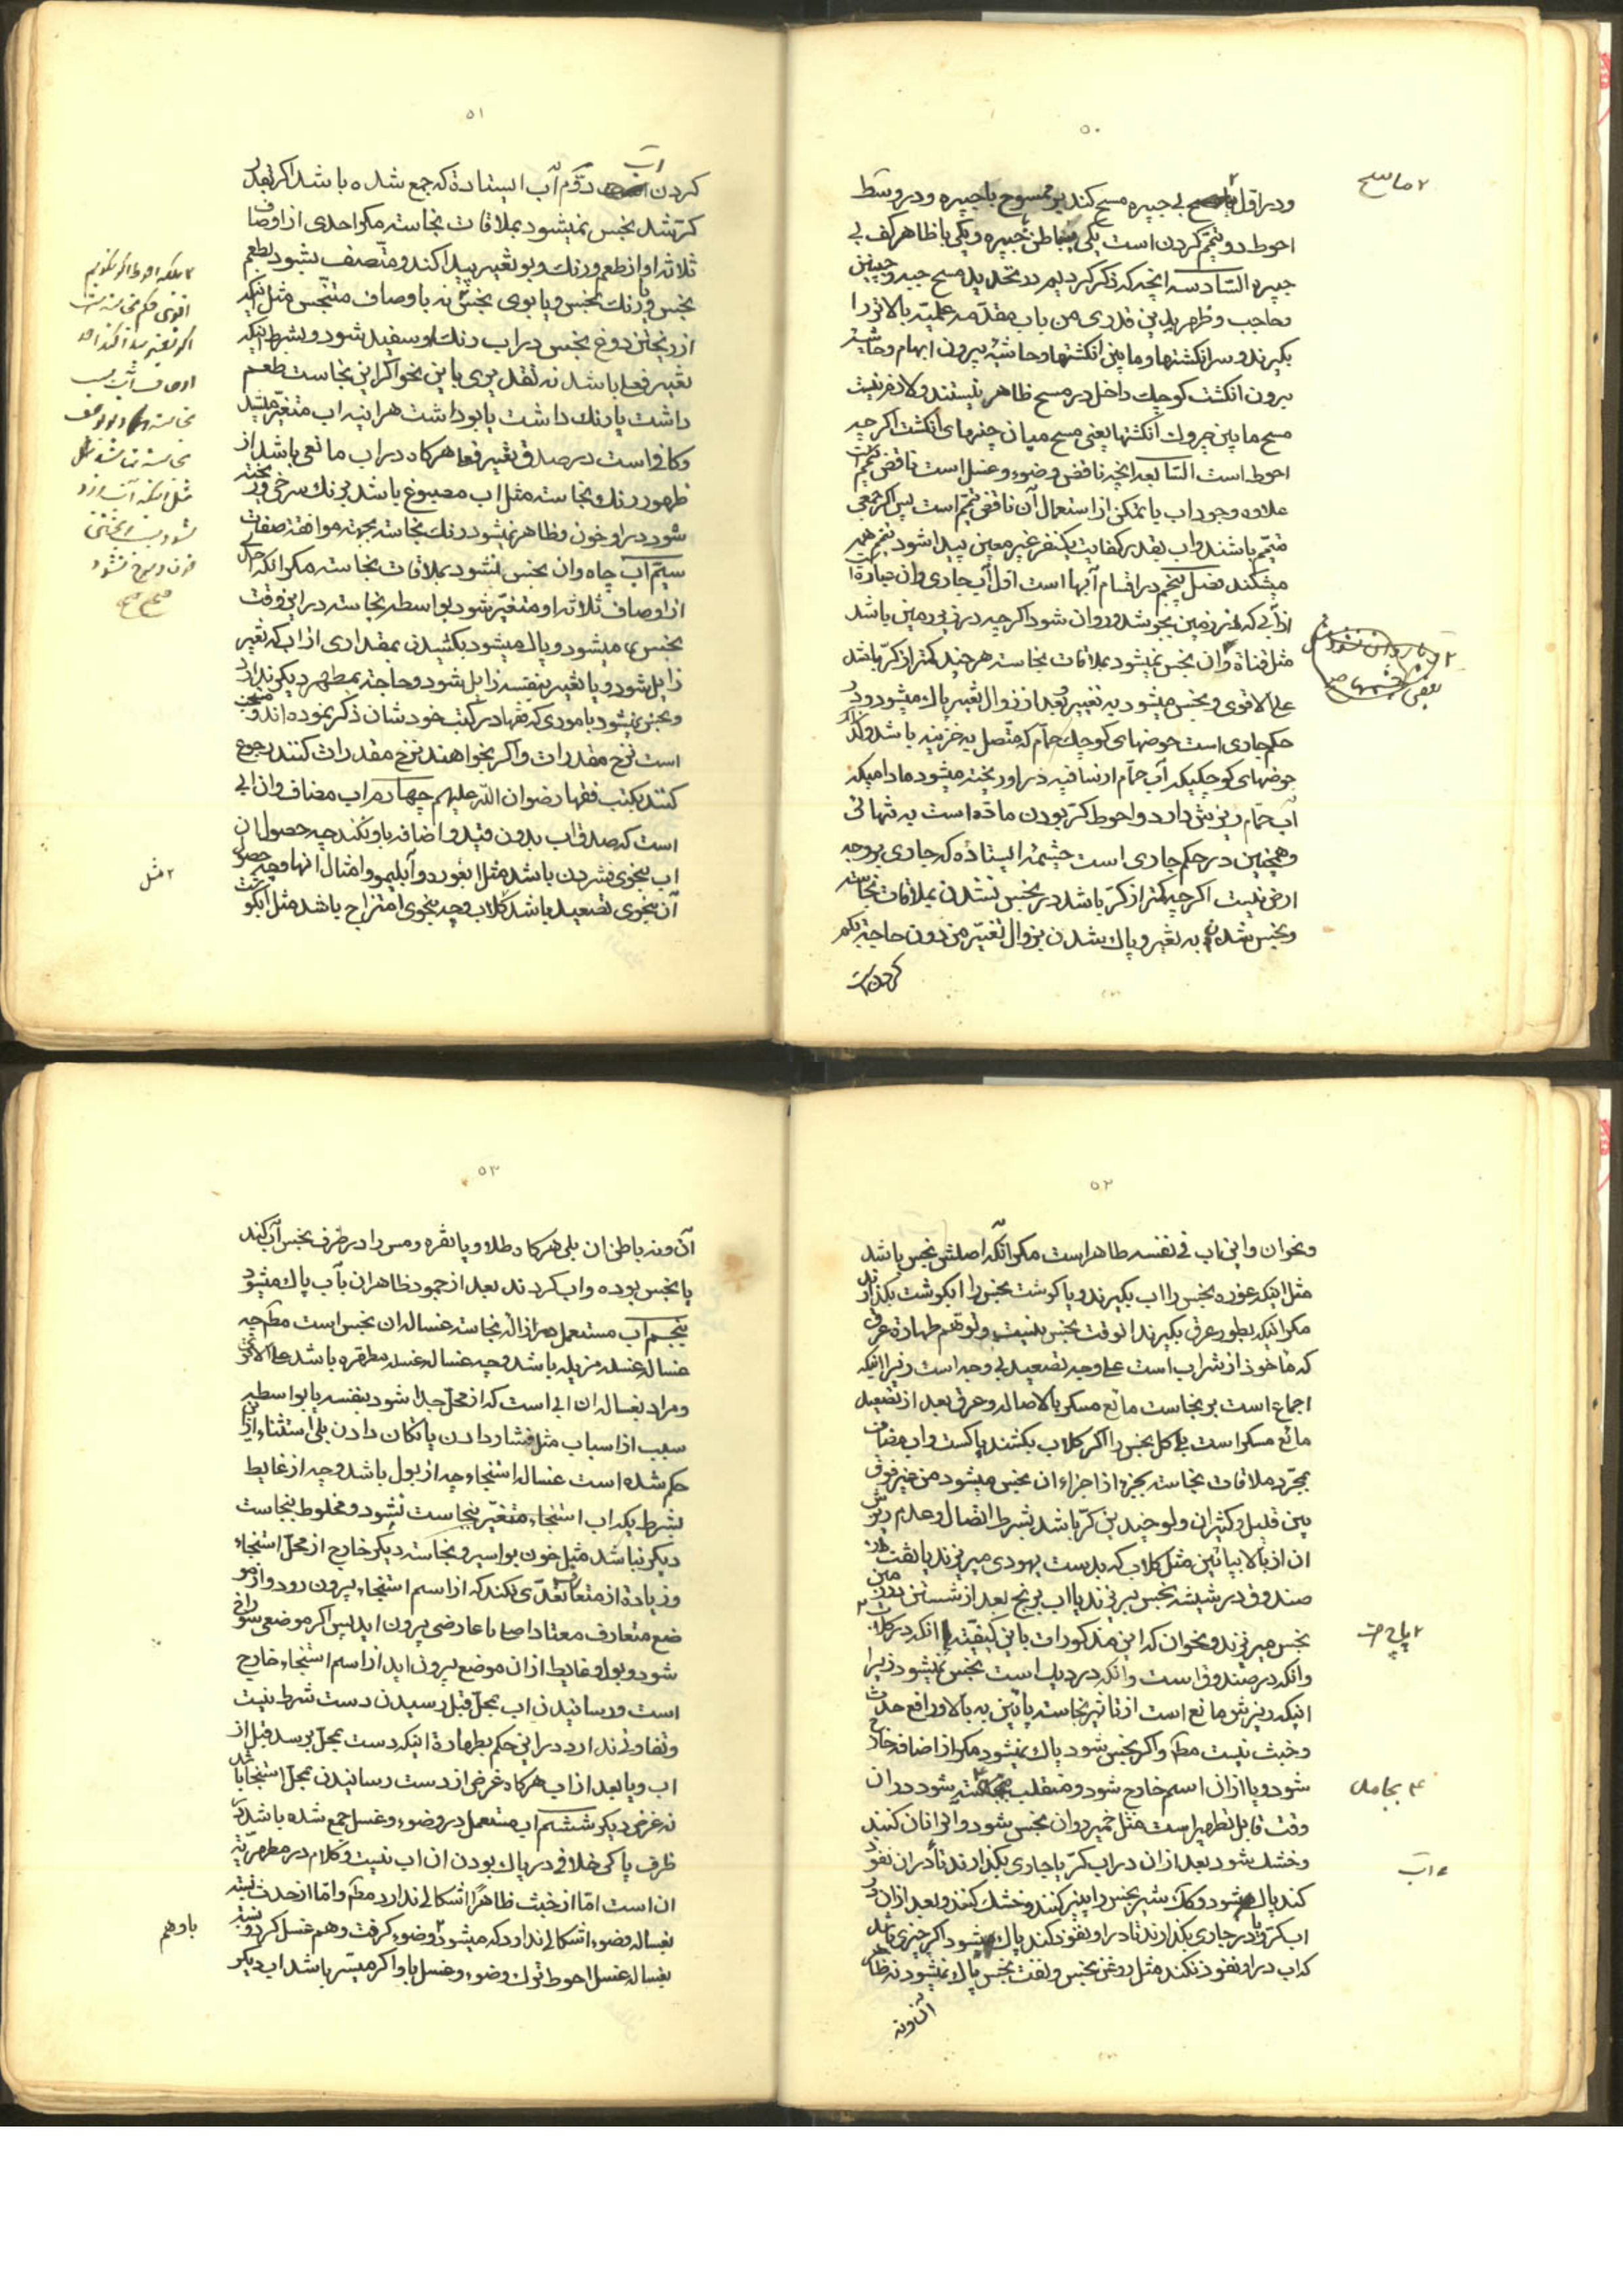 ۵۰
ودر اول بی جبیره مسح کند بر ممسوح با جبیره ودر وسط
احوط دو تیمم کردن است یکی بباطن جبیره ویکی با ظاهر کف بی
جبیره السادسه انچه که ذکر کردیم در تحدید مسح جبهه وجبینین
وحاجب وظهر یدین قدری من باب مقدمه علمیه بالاتر را
بگیرند وسر انگشتها وما بین انگشتها وحاشیه بیرون ابهام وحاشیه
بیرون انگشت کوچک داخل در مسح ظاهر نیستند ولازم نیست
مسح ما بین انگشتها یعنی مسح میان انگشت اگر چه
احوط است السابعه انچه ناقض وضوء وغسل است ناقض تیمم است
علاوه وجود اب با تمکن از استعمال آن ناقض تیمم است پس اگر جمعی
متیمم باشند واب بقدر کفایت یکنفر غیر معین پیدا شود تیمم همه
میشکند فصل پنجم در اقسام آبها است اول آب جاری وان عبارة است
از آبی که از زمین بجوشد وروان شود اگر چه در زیر زمین باشد
مثل قناة وان نجس نمیشود بملاقات نجاسته هر چند کمتر از کر باشد
علی الاقوی ونجس میشود به تغییر وبعد از زوال تغییر پاک میشود ودر
حکم جاری است حوضهای کوچک حمام که متصل به خزینه باشد وکذا
حوضهای کوچکیکه آب حمام از ساقیه در او ریخته میشود مادامیکه
آب حمام ریزش دارد واحوط کر بودن ماده است به تنهائی
وهمچنین در حکم جاری است چشمه ایستاده که جاری بر وجه
ارض نیست اگر چه کمتر از کر باشد در نجس نشدن بملاقات نجاسته
ونجس شدن به تغییر وپاک شدن بزوال تغیر من دون حاجة بکم
کردن
۲ ماسح
۵۱
کردن اب دوم آب ایستاده که جمع شده باشد اگر بقدر
کر شد نجس نمیشود بملاقات نجاسته مگر احدی از اوصاف
ثلاثه او از طعم ورنگ وبو تغییر پیدا کند ومتصف بشود بطعم
نجس ویا رنگ نجس ویا بوی نجس نه باوصاف متنجس مثل اینکه
از ریختن دوغ نجس در اب رنگ او سفید شود وبشرط اینکه
تغییر فعلی باشد نه تقدیری باین نحو اگر این نجاست طعم
داشت یا رنگ داشت یا بو داشت هراینه اب متغیر میشد
وکافی است در صدق تغییر فعلی هر گاه در اب مانعی باشد از
ظهور رنگ نجاسته مثل اب مصبوغ باشد برنگ سرخی وریخته
شود در او خون وظاهر نمیشود رنگ نجاسته بجهته موافقة صفات
سیم آب چاه وان نجس نشود بملاقات نجاسته مگر انکه احد
از اوصاف ثلاثه او متغیر شود بواسطه نجاسته در این وقت
نجس میشود وپاک میشود بکشیدن بمقداری از اب که تغییر
زایل شود ویا تغییر بنفسه زایل شود وحاجة بمطهر دیگر ندارد
ونجس نمیشود باموری که فقها در کتب خودشان ذکر نموده اند ومستحب
است نزح مقدرات واگر بخواهند نزح مقدرات کنند رجوع
کنند بکتب فقها رضوان الله علیهم چهارم اب مضاف وان ابی
است که صدق اب بدون قید واضافه باو نکند چه حصول ان
اب بنحوی فشردن باشد مثل ابغوره وآبلیمو وامثال انها وچه حصول
آن بنحوی تصعید باشد کلاب وچه بنحوی امتزاج باشد مثل ابگوشت
۲ مثل
۵۲
ونحوان واین اب فی نفسه طاهر است مگر آنکه اصلش نجس باشد
مثل اینکه غوره نجس را اب بگیرند ویا گوشت نجس را ابگوشت بگذارند
مگر اینکه بطور عرق بگیرند انوقت نجس نیست ولو توهم طهارة عرقی
که ماخوذ از شراب است علی وجه تصعید بی وجه است زیرا اینکه
اجماع است بر نجاست مائع مسکر بالاصاله وعرق بعد از تصعید
مائع مسکر است بلی گل نجس را اگر گلاب بکشند پاکست واب مضاف
بمجرد ملاقات نجاسته بجزء از اجزاء ان نجس میشود من غیر فرق
بین قلیل وکثیر ان ولو چندین کر باشد بشرط اتصال وعدم ریزش
ان از بالا بپائین مثل گلاب که بدست یهودی میریزند یا نفت در
صندوق در شیشه نجس میریزند یا اب برنج بعد از شستن روی زمین
نجس میریزند ونحوان که این مذکورات باین کیفیت انکه در گلاب
وانکه در صندوق است وانکه در دیک است نجس نمیشود زیرا
اینکه ریزش مانع است از تاثیر نجاسته پائین به بالا ورافع حدث
وخبث نیست مطم واگر نجس شود پاک نمیشود مگر از اضافه خارج
شود ویا از ان اسم خارج شود ومنقلب شود در ان
وقت قابل تطهیر است مثل خمیر وان نجس شود وانرا نان کنند
وخشک شود بعد از ان در اب کر یا جاری بگذارند تا در ان نفوذ
کند پاک میشود وکک شیر نجس را پنیر کنند وخشک کنند وبعد از ان در
اب کر ویا در جاری بگذارند تا در او نفوذ کند پاک میشود اگر چیزی باشد
که اب در او نفوذ نکند مثل روغن نجس ونفت نجس پاک نمیشود نه ظاهر
آن ونه
۴ بجامد
۶ اب
۵۳
آن ونه باطن ان بلی هر گاه طلا ویا نقره ومس را در ظرف نجس آب کند
یا نجس بوده واب کردند بعد از جمود ظاهر ان بآب پاک میشود
پنجم آب مستعمل در ازاله نجاسته غساله ان نجس است مطم چه
غساله غسله مزیله باشد وچه غساله غسله مطهره باشد علی الاقوی
ومراد بغساله ان ابی است که از محل جدا شود بنفسه یا بواسطه
سبب از اسباب مثل فشار دادن یا تکان دادن بلی استثناء از این
حکم شده است غساله استنجاء چه از بول باشد وچه از غایط
بشرط یکه اب استنجاء متغیر بنجاست نشود ومخلوط بنجاست
دیگر نباشد مثل خون بواسیر ونجاسته دیگر خارج از محل استنجاء
وزیاده از متعارف تعدی نکند که از اسم استنجاء بیرون رود واز مو
ضع متعارف معتاد اصلی یا عارضی بیرون اید پس اگر موضعی سوراخ
شود وبول وغایط از ان موضع بیرون اید از اسم استنجاء خارج
است ورسانیدن اب بمحل قبل رسیدن دست شرط نیست
وتفاوتی ندارد در این حکم بطهارة اینکه دست بمحل برسد قبل از
اب ویا بعد از اب هر گاه غرض از دست رسانیدن بمحل استنجا باشد
نه غرض دیگر ششم اب مستعمل در وضوء وغسل جمع شده باشد در
ظرف پاکی خلافی در پاک بودن ان اب نیست وکلام در مطهریة
ان است اما از خبث ظاهرا اشکالی ندارد مطم واما از حدث نسبته
بغساله وضوء اشکالی ندارد که میشود وضوء گرفت وهم غسل کرد ونسبته
بغساله غسل احوط ترک وضوء وغسل باو اگر میسر باشد اب دیگر
باوهم